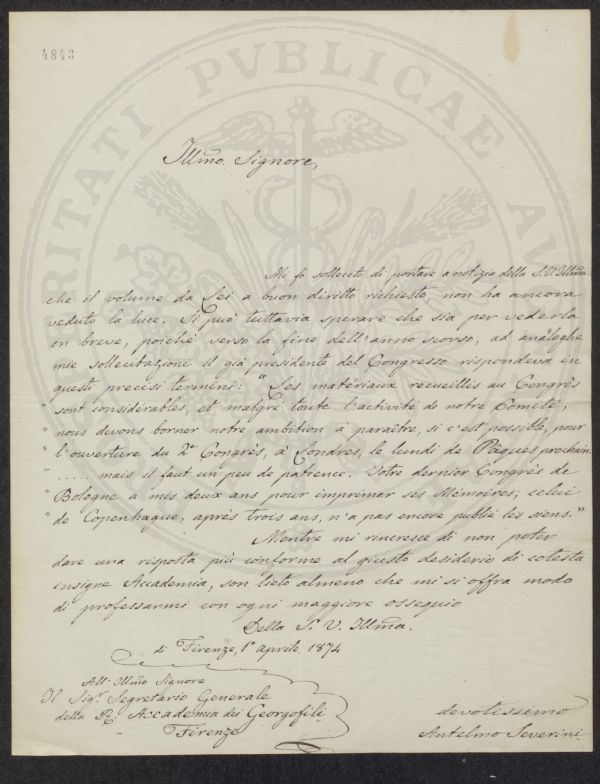 4843
PVBLICAE
Illmo. Signore,
Mi fo sollecito di portare a notizia della S. V. Illma
che il volume da Lei a buon diritto richiesto, non ha ancora
veduto la luce. Si può tuttavia sperare che sia per vederla
in breve, poichè verso la fine dell'anno scorso, ad analoghe
mie sollecitazioni il già presidente del Congresso rispondeva in
questi precisi termini: "Les matériaux recueillis au Congrès
sont considerables, et malgré toute l'activité de notre Comité,
" nous devons borner notre ambition à paraître, si c'est possible, pour
" l'ouvertière du 2e Congrès, à Londres, le lundi de Pâques prochain.
" ..... mais il faut un peu de patience. Votre dernier Congrès de
" Bologne a mis deux ans pour imprimer ses Mémoires; celui
" de Copenhague, après trois ans, n'a pas encore publié les siens."
Mentre mi rincresce di non poter
dare una risposta più conforme al giusto desiderio di cotesta
insigne Accademia, son lieto almeno che mi si offra modo
di professarmi con ogni maggiore ossequio
Della S. V. Illma.
di Firenze, 1° aprile 1874
All' Illmo Signore
Il Sigr Segretario Generale
della R. Accademia dei Georgofili
Firenze
devotissimo
Antelmo Severini